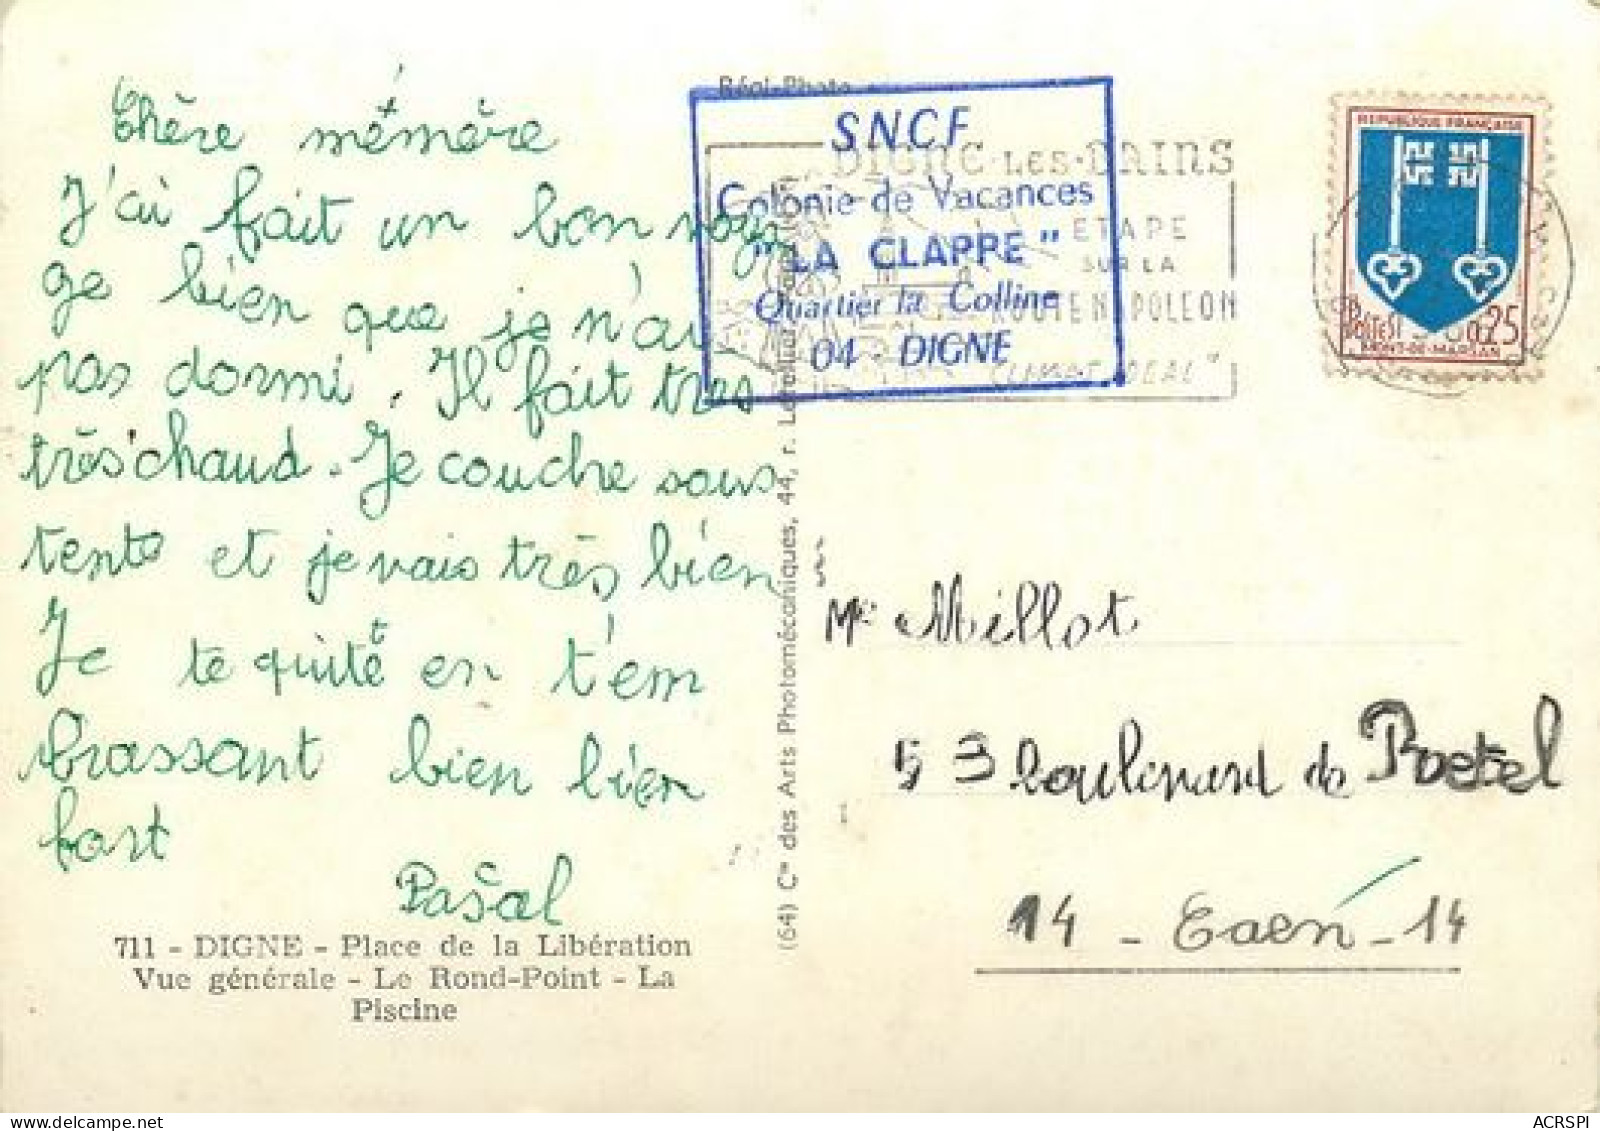 Chère mémère
J'ai fait un bon voya
ge bien que je n'ai
pas dormi. Il fait tres
très chaud. Je couche sous
tente et je vais très bien
Je te quitte en t'em
brassant bien bien
fort
Pascal
711 - DIGNE - Place de la Libération
Vue générale - Le Rond-Point - La
Piscine
(64) Cie des Arts Photomécaniques, 44, r.
Régi-Photo
S.N.C.F.
Colonie de Vacances
"LA CLAPPE"
Quartier la Colline
04 - DIGNE
DIGNE-LES-BAINS
ETAPE
SUR LA
ROUTE NAPOLEON
CLIMAT IDEAL"
REPUBLIQUE FRANÇAISE
POSTES 0,25
MONT-DE-MARSAN
Me Millot
53 boulevard de Poetel
14 - Caen - 14
ACRSPI